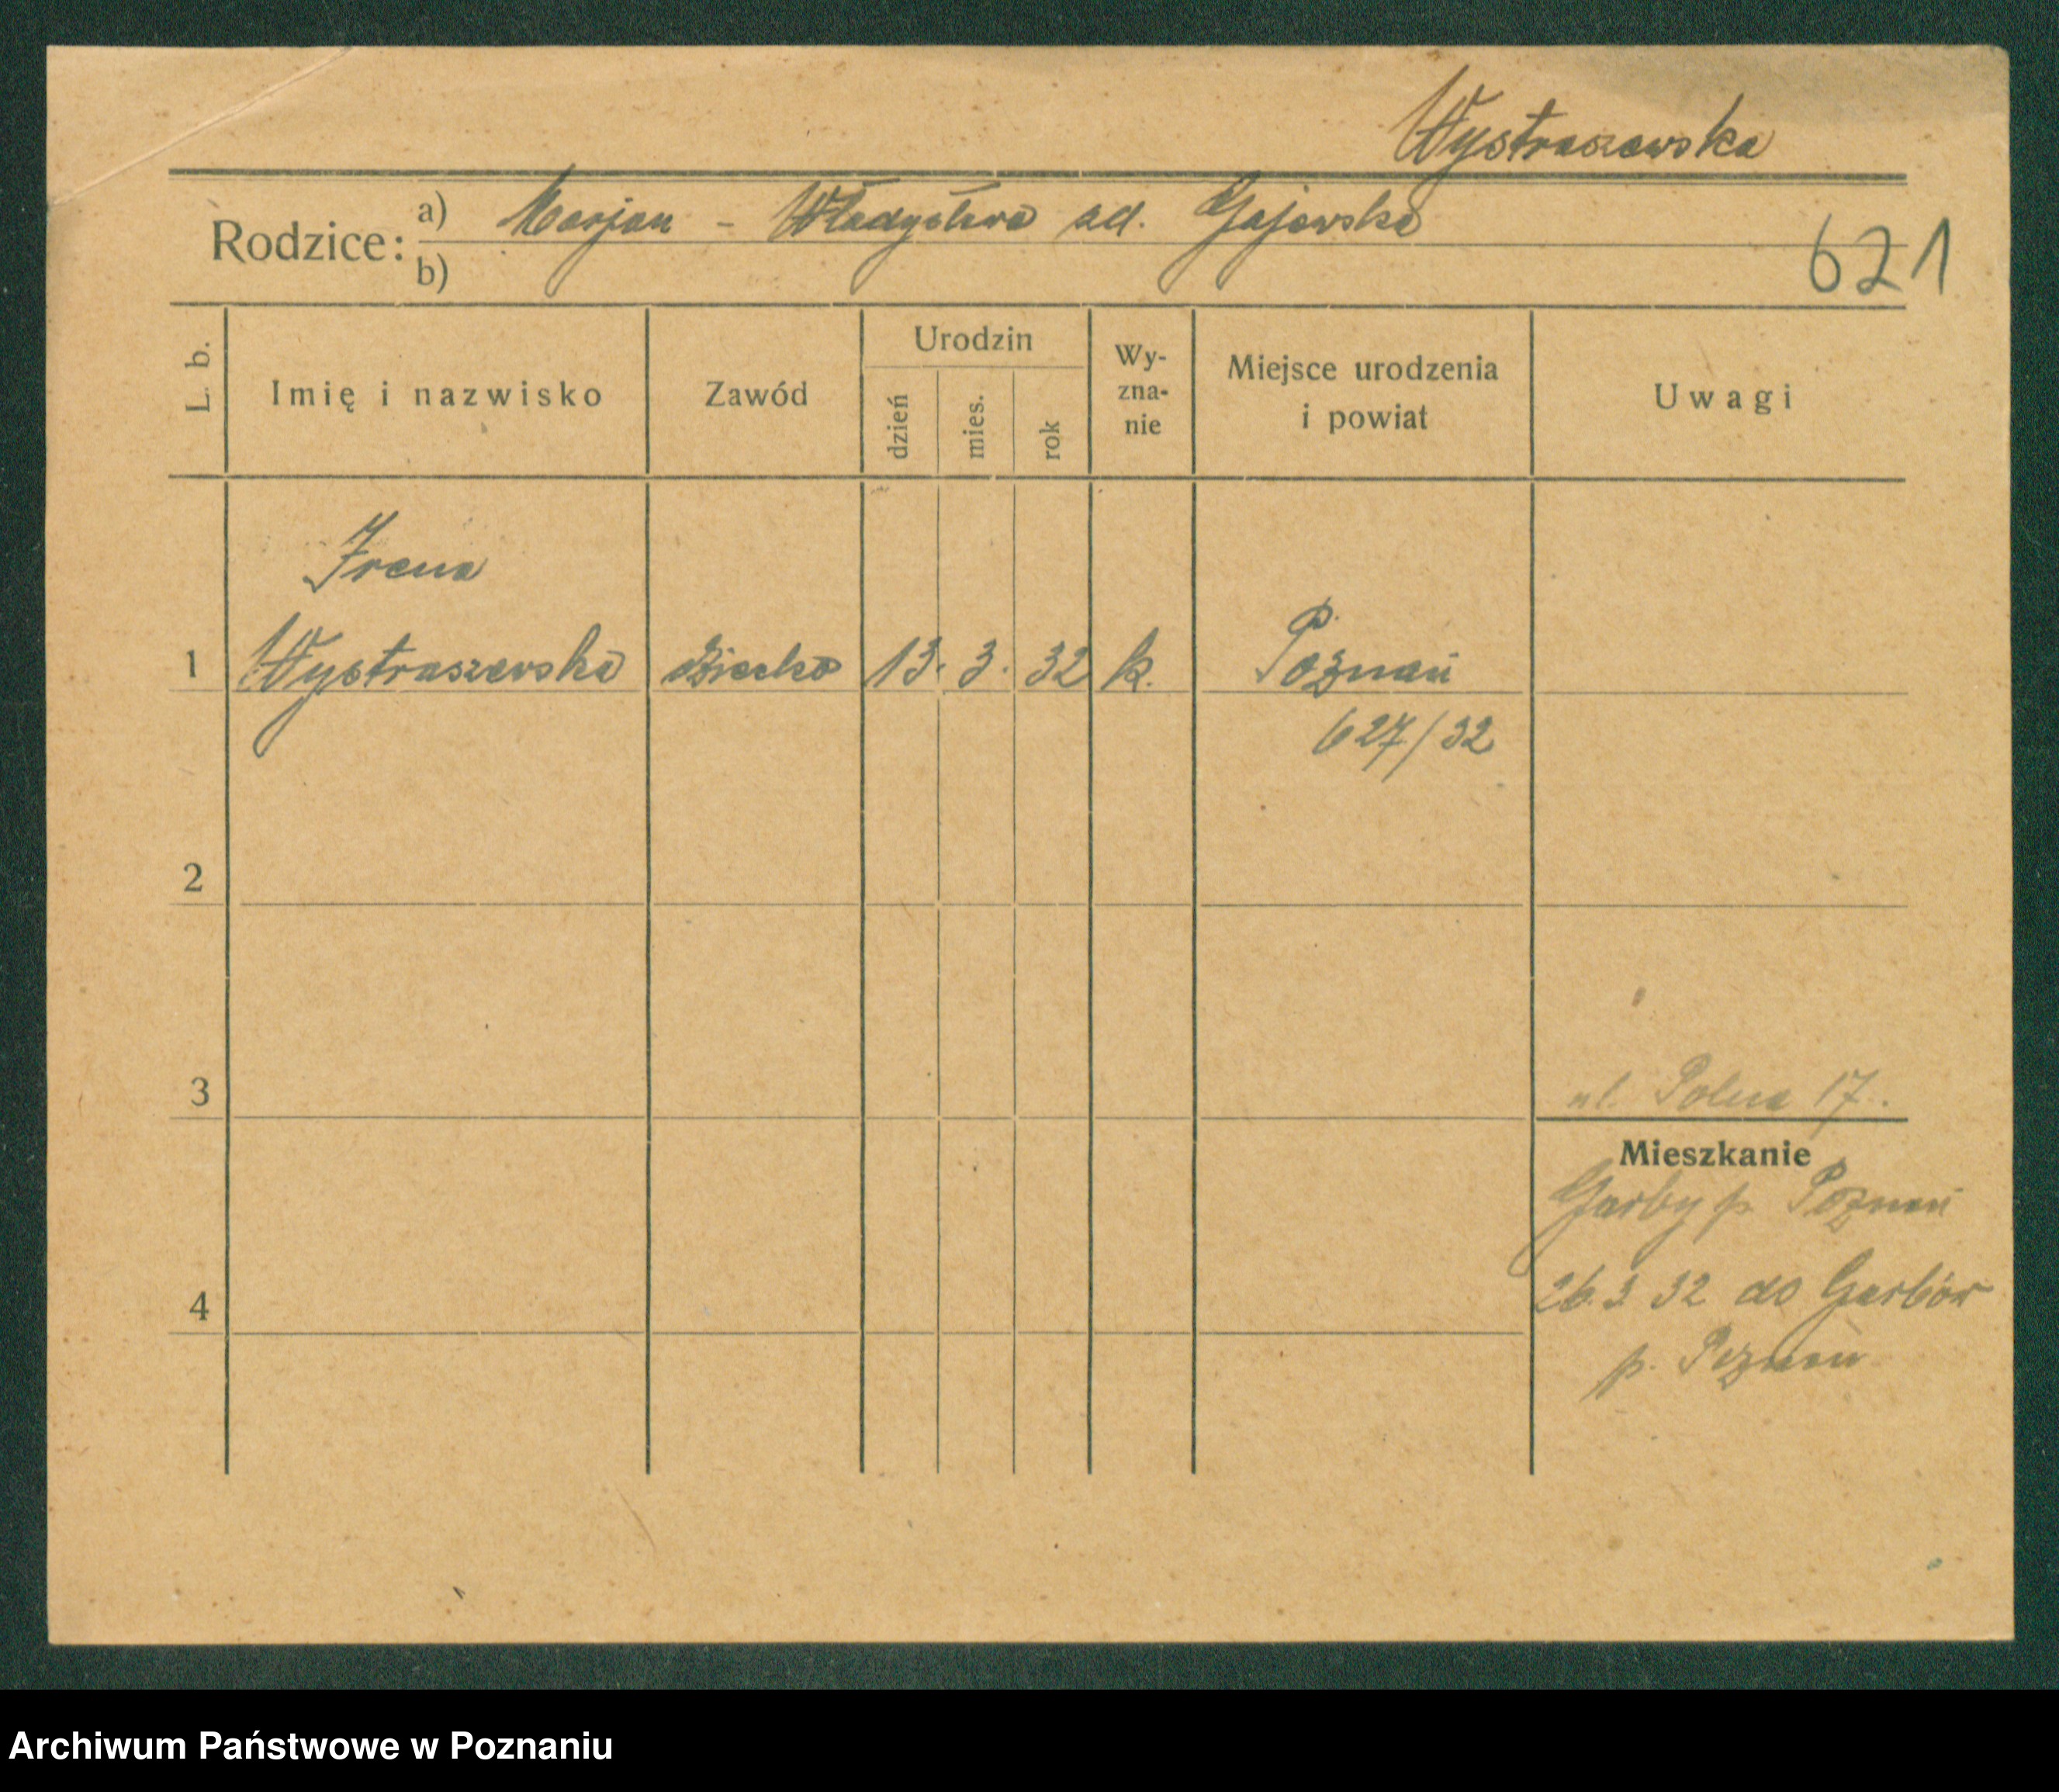 Wystraszewska
Rodzice: a) Marjan - Władysława ad. Gajewska
b)
621
L. b.
Imię i nazwisko
Zawód
Urodzin
dzień
mies.
rok
Wy-
zna-
nie
Miejsce urodzenia
i powiat
Uwagi
Irena
P.
1 Wystraszewska dziecko 13. 3. 32 k. Poznań
627/32
2
3
ul. Polna 17.
Mieszkanie
Garby p. Poznań
4
26.3.32 do Garbów
p. Poznań
Archiwum Państwowe w Poznaniu